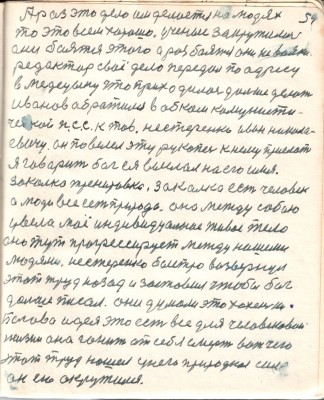 А раз это дело им делается на людях 59
то это всем хорошо, ученые закружились
они боятся этого а раз боятся они не вояки.
редактор свой дело передал по адресу
в медецыну это приходилось дальше делать
Иванов обратился в обком комунисти-
ческой п.с.с. к тов. нестеренко иван
евичу. он повелел эту рукопес к нему прислать
я говарит бог ся выслал на его имя.
Закалка тренировка. Закалка есть человек
а люди все есть природа. она между собою
увела моё индивидуальное живое тело
оно тут прогрессирует между нашими
людями. нестеренко быстро возвернул
этот труд назад и заставил чтоби бог
дальше писал. они думали это
Богова идея это есть все для человековой
жизни она гонит от себя смерть вот чего
этот труд нашел у него природная сила
он ею окружился.